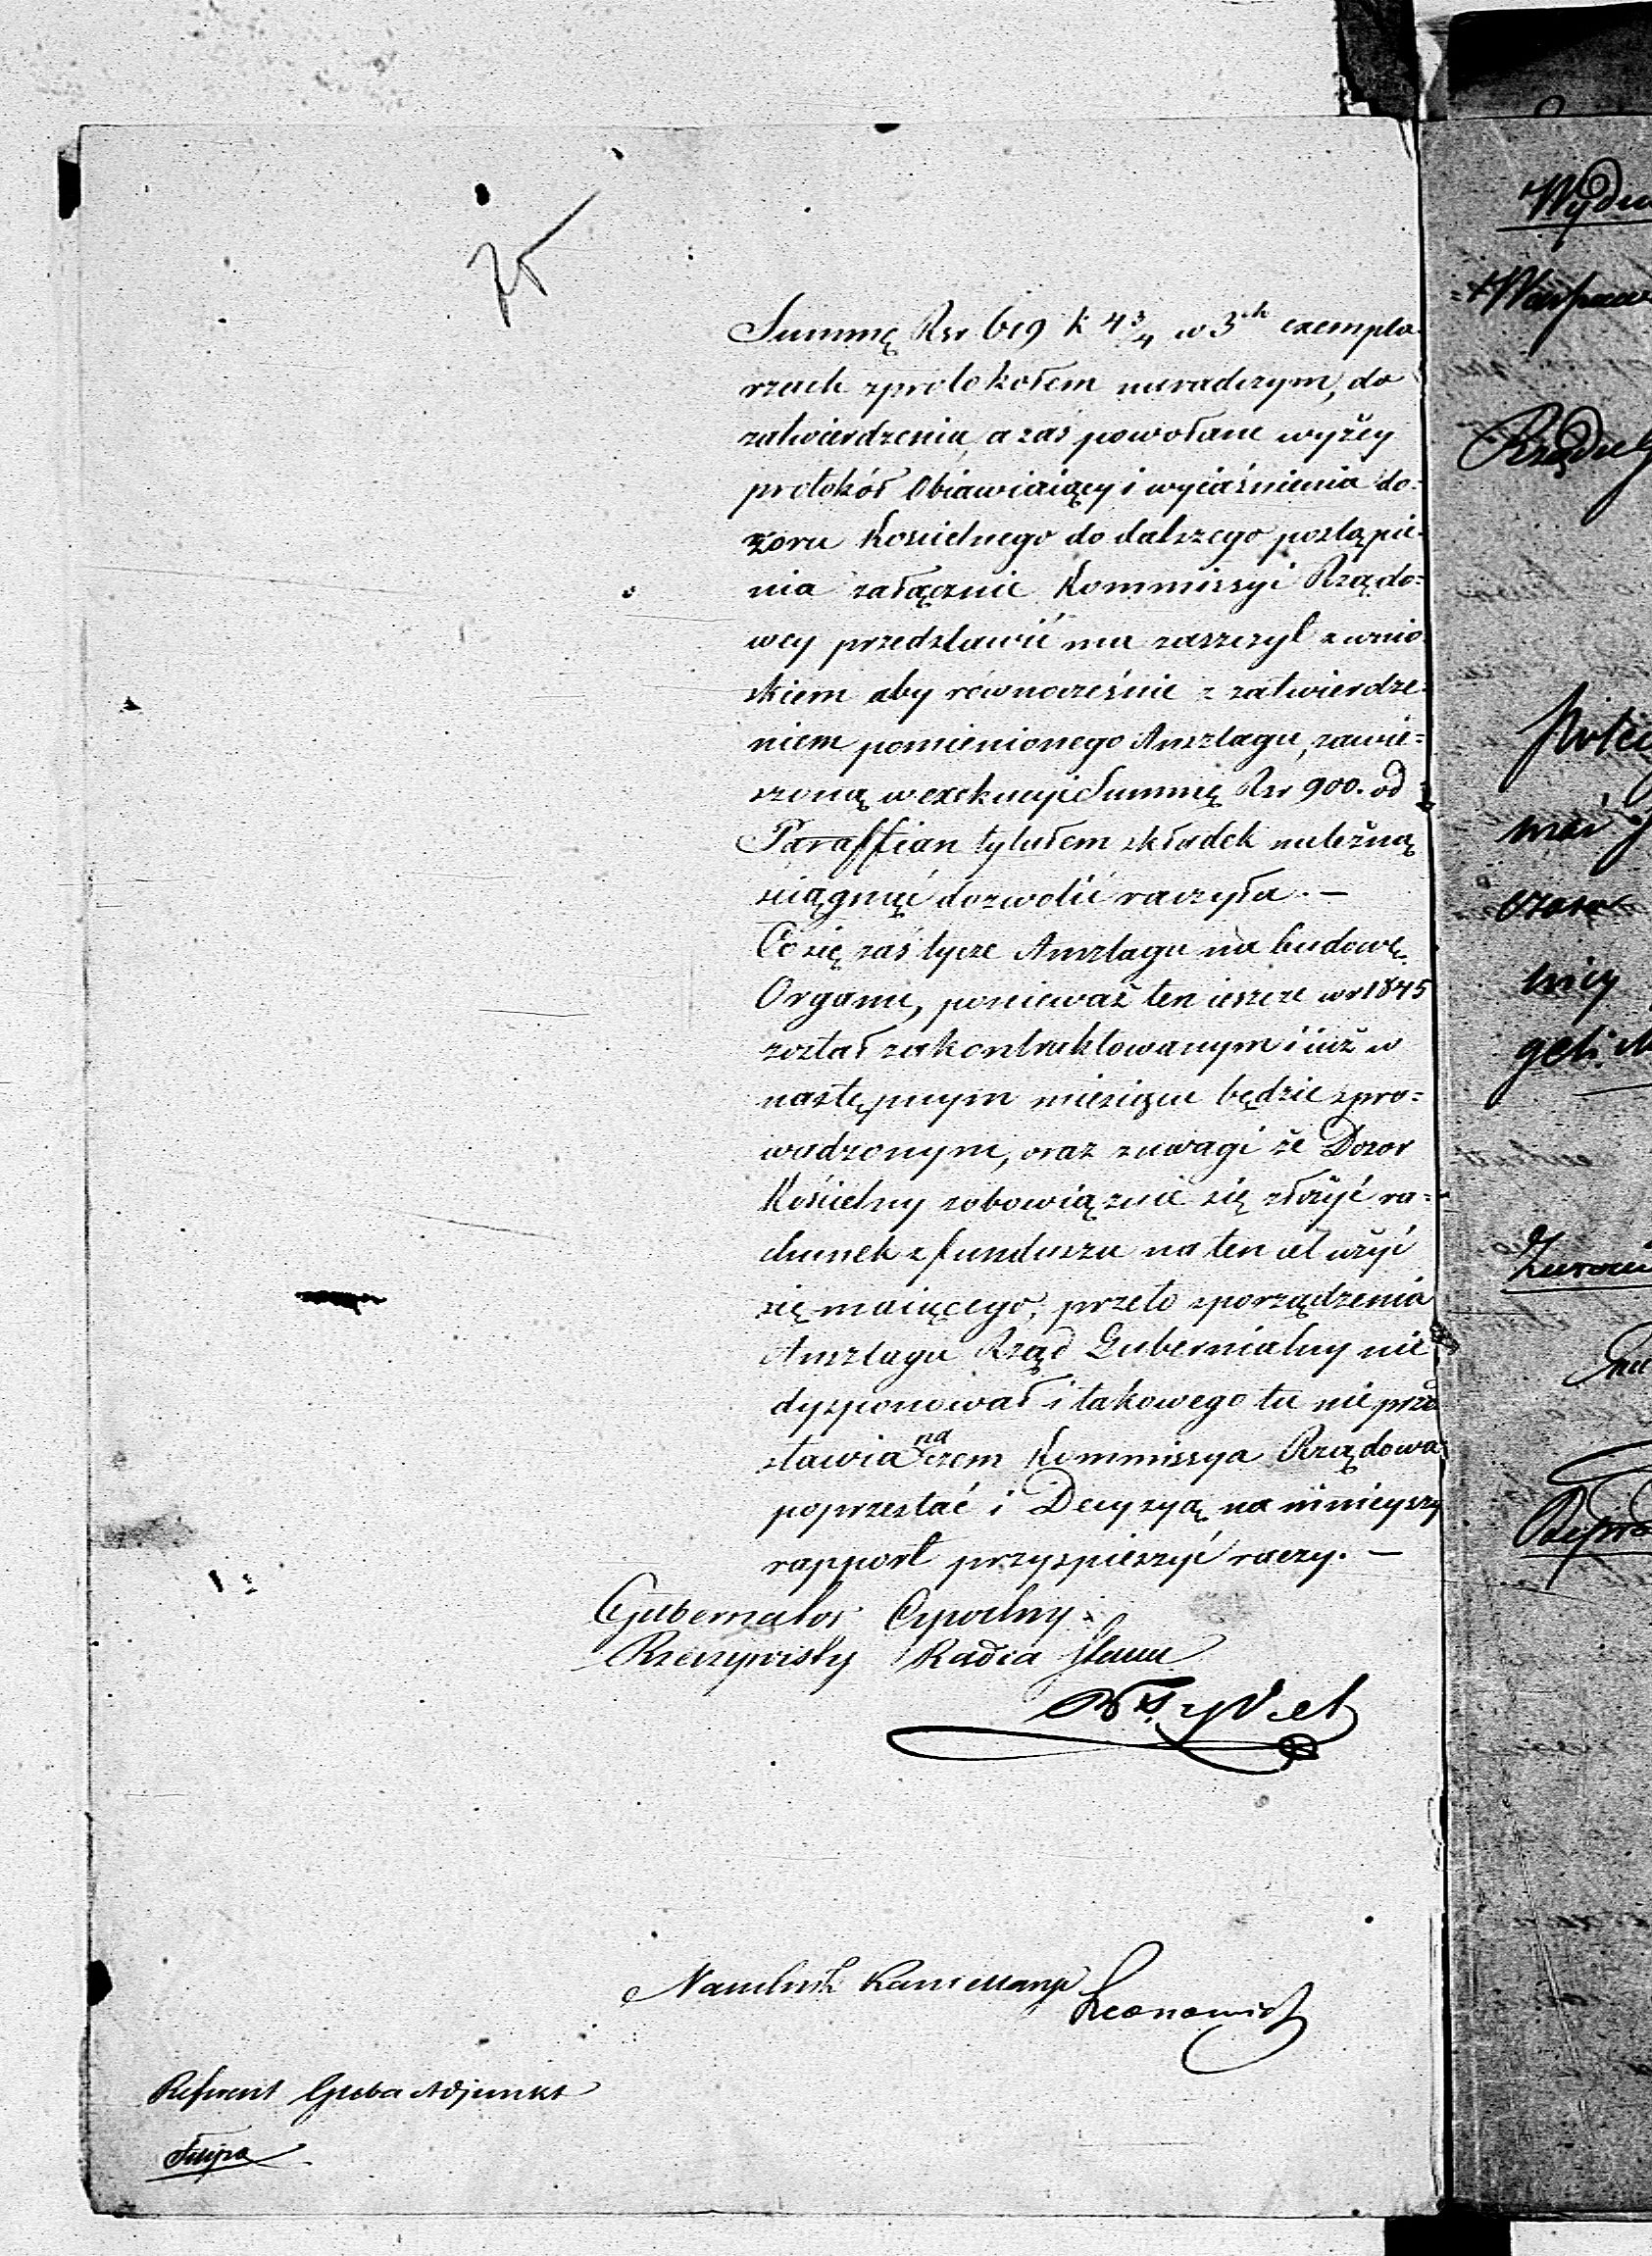 75
Summę Rsr 619 k 4 3/4 w 3ch exempla-
rzach z protokołem naradczym, do
zatwierdzenia, a zaś powołane wyżey
protokół Obiawiaiący i wyiaśnienia do=
zoru Kościelnego do dalszego postąpie-
nia załącznie Kommissyi Rządo=
wey przedstawić ma zaszczyt z wnio-
skiem aby równocześnie z zatwierdze-
niem pomienionego Anszlagu, zawie=
szoną w exekucyi Summę Rsr 900. od
Paraffian tytułem składek należną
ściągnąć dozwolić raczyła. —
Co się zaś tycze Anszlagu na budowę
Organu, ponieważ ten ieszcze w r 1845
został zakontraktowanym i iuż w
następnym miesiącu będzie spro=
wadzonym, oraz z uwagi że Dozor
Kościelny zobowiązuie się złożyć ra=
chunek z funduszu na ten cel użyć
się maiącego, przeto sporządzenia
Anszlagu Rząd Gubernialny nie
dysponował i takowego tu nie przed
stawia na czem Kommissya Rządowa
poprzestać i Decyzyą na ninieyszy
rapport przyspieszyć raczy. —
Gubernator Cywilny
Rzeczywisty Radca Stanu
Naczelnik Kancellaryi
Leonowicz
Referent Gluba Adjunkt
Wydzi
Rządu G
mai
czasie
nicy